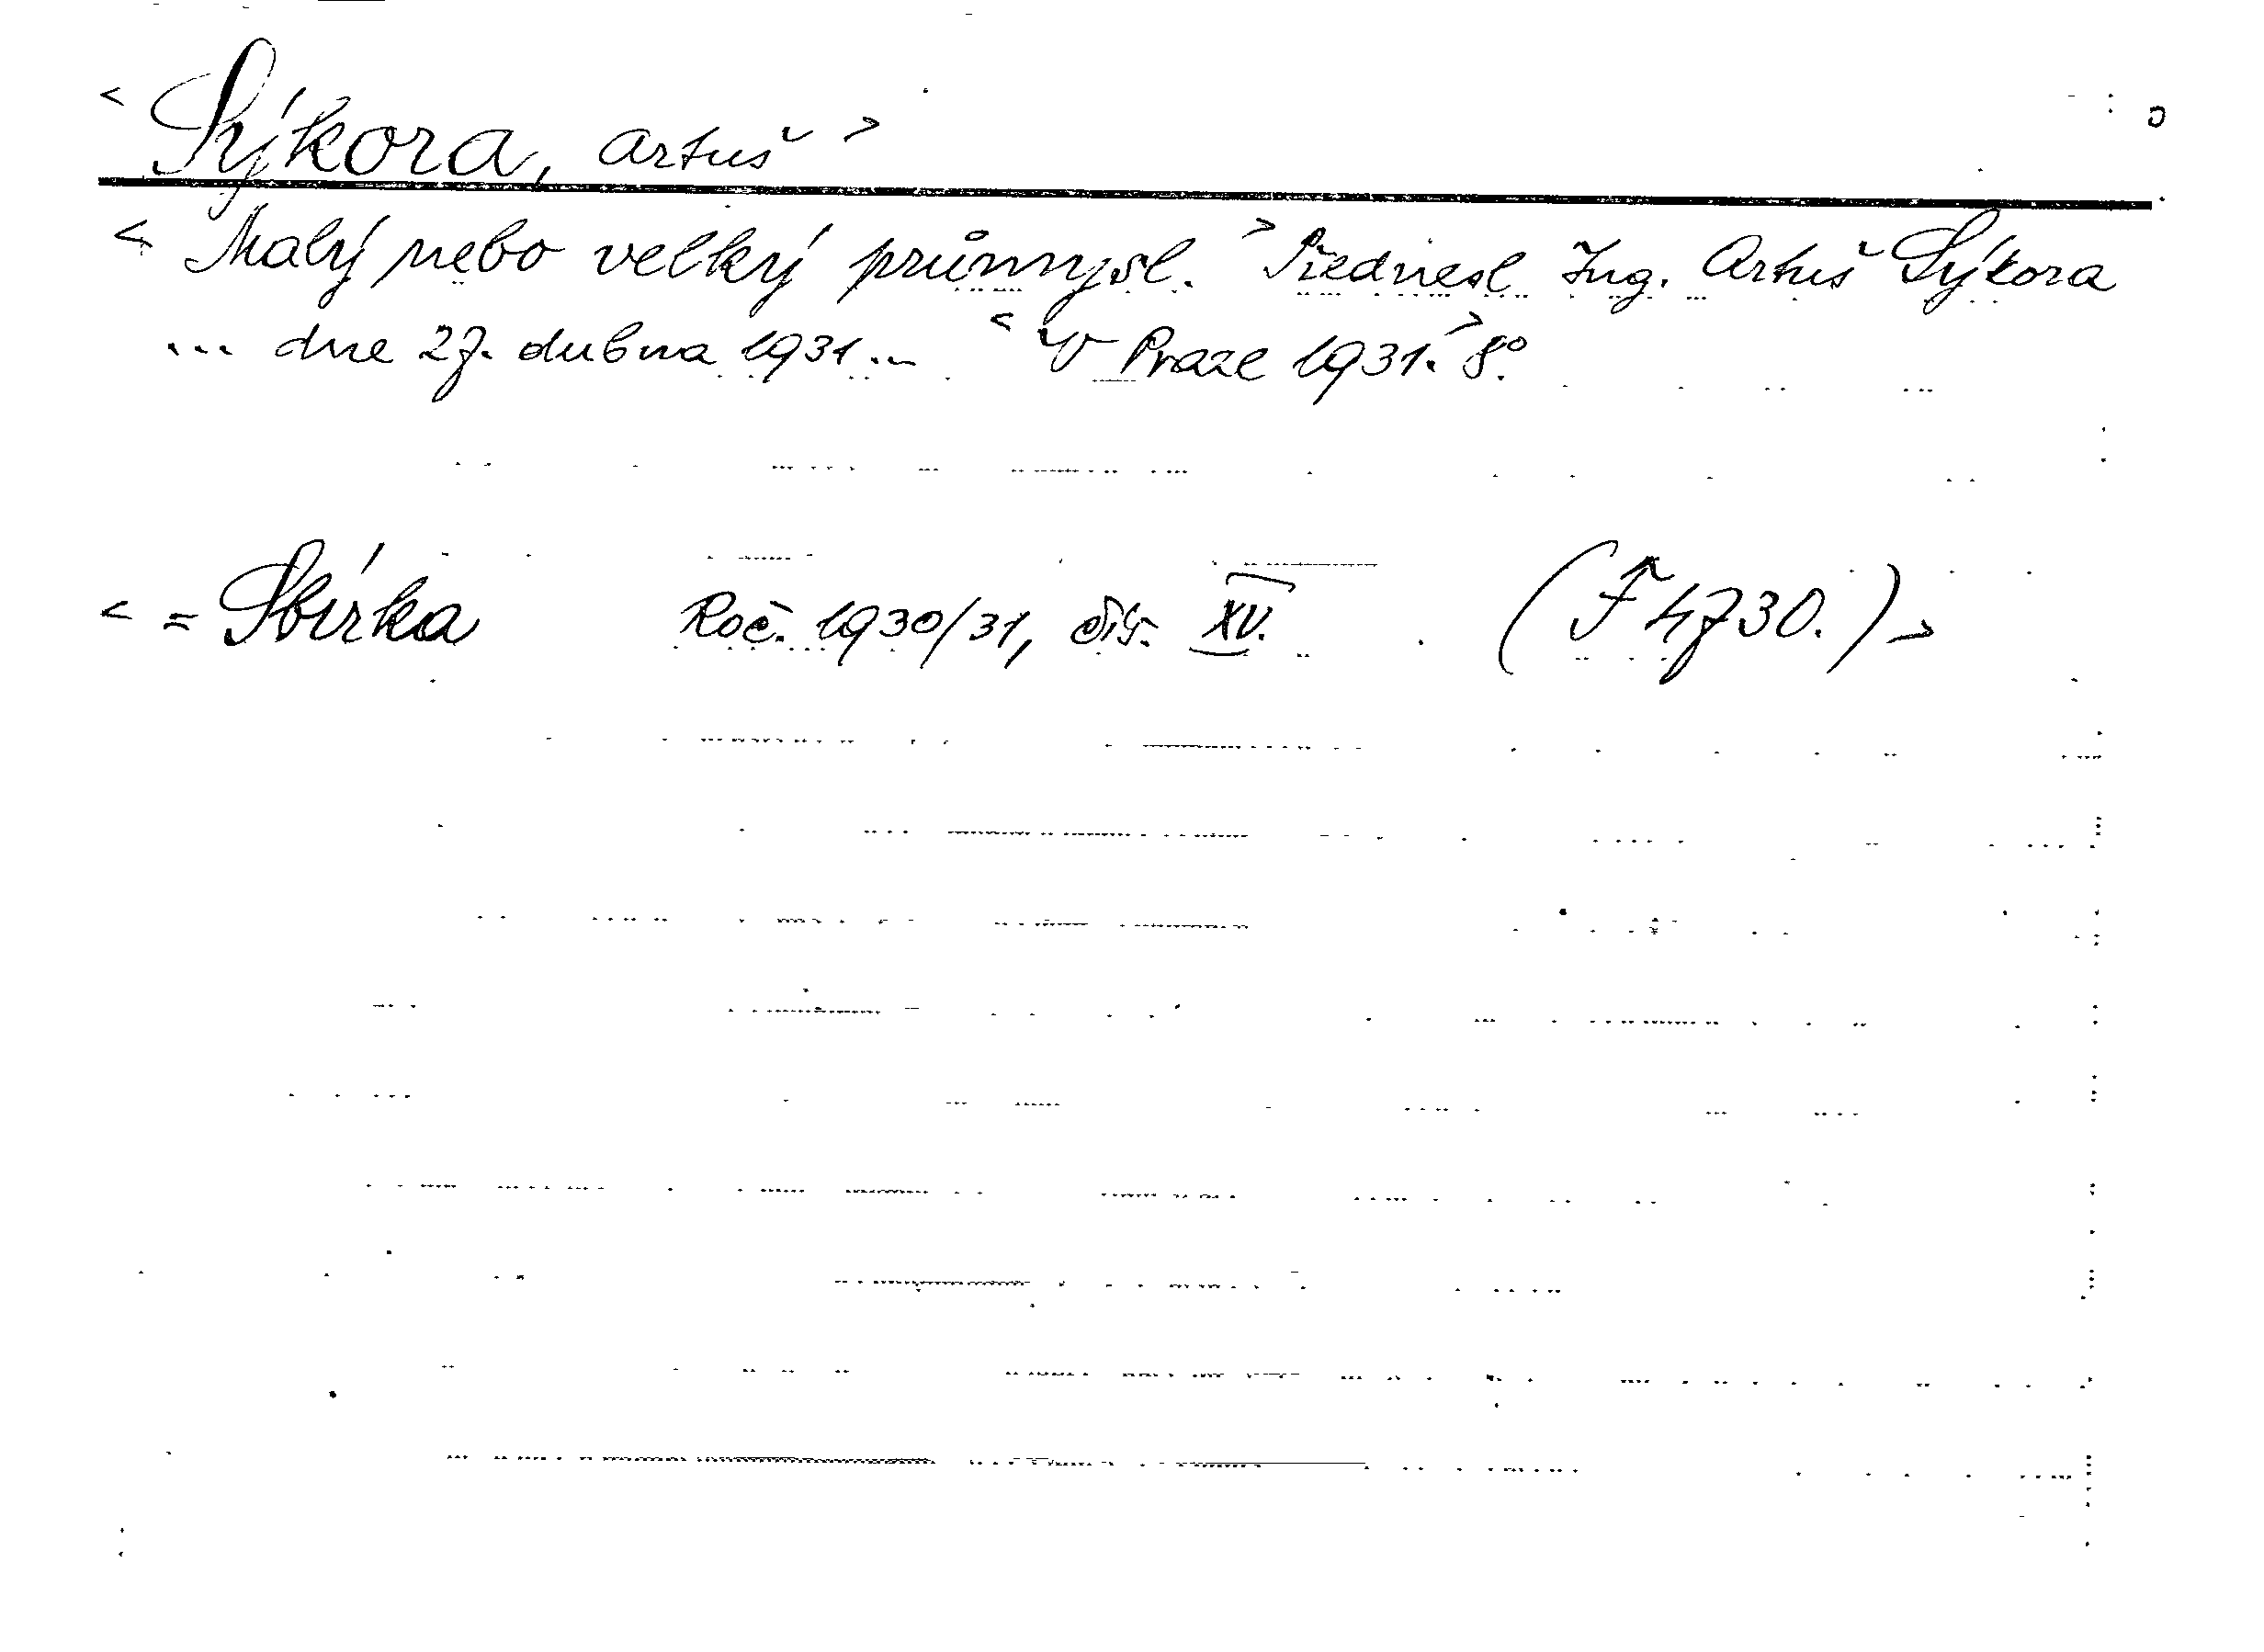 < Sýkora, Artuš >
< Malý nebo velký průmysl. > Přednesl Ing. Artuš Sýkora
... dne 27. dubna 1931 ... < V Praze 1931. > 8°
< = Sbírka Roč. 1930/31, čís. XV. (F 4730.) >